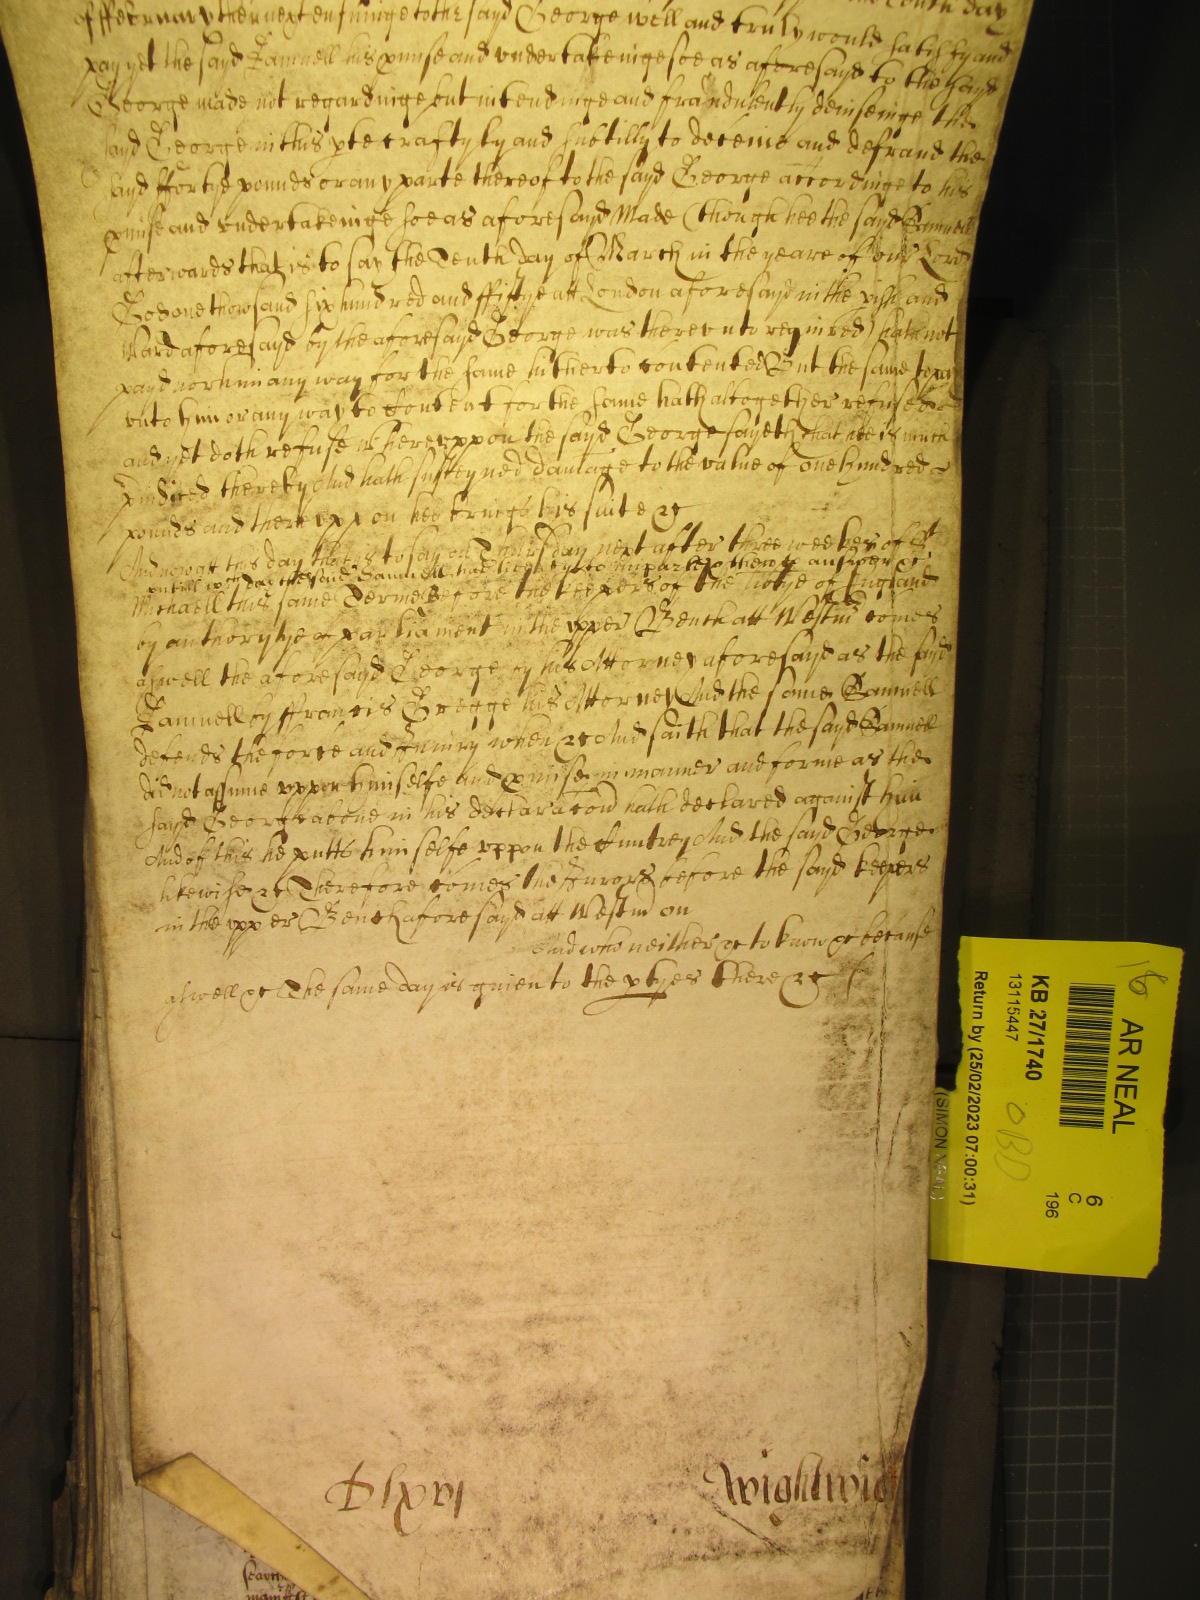 of ffebruary then next ensuinge to the sayd George well and truly would satisfy and
pay yet the sayd Samuell his pmise and undertakeinge soe as aforesayd to the sayd
George made not regardinge but intendinge and fraudulently deviseinge the
sayd George in this pte craftyly and subtilly to deceive and defraud the
sayd ffortye pounds or any parte thereof to the sayd George accordinge to his
pmise and undertakeinge soe as aforesayd Made (though hee the sayd Samuell
afterwards that is to say the Tenth day of March in the yeare of our Lord
God one thowsand six hundred and ffiftye att London aforesayd in the pish and
Ward aforesayd by the aforesayd George was thereunto required) hath not
payd nor him any way for the same hitherto contented But the same to pay
unto him or any way to Content for the same hath altogether refused
and yet doth refuse Whereuppon the sayd George sayeth that hee is much
piudiced thereby And hath susteyned damage to the value of one hundred
pounds and thereuppon hee brings his suite &c
And now att this day that is to say on Thursday next after three weekes of St
untill wch day the sayd Samuell had liberty to imparle & then to answer &c
Michaell this same Terme before the keepers of the libtye of England
by authoritye of parliament in the upper Bench att Westm comes
aswell the aforesayd George by his Attorney aforesayd as the sayd
Samuell by ffrancis Gregge his Attorney And the same Samuell
defends the force and Iniury when &c And saith that the sayd Samuell
did not assume uppon himselfe and pmise in manner and forme as the
sayd George above in his declaracon hath declared against him
And of this he putts himselfe uppon the Cuntrey And the sayd George
likewise &c Therefore comes the Jurors before the sayd keepers
in the upper Bench aforesayd att Westm on
And who neither &c to know &c because
aswell &c The same day is given to the ptyes there &c
Dlxvi
Wightwic
16 AR NEAL
KB 27/1740
13115447
Return by (25/02/2023 07:00:31)
OBD
6
C
196
(SIMON NEAL)